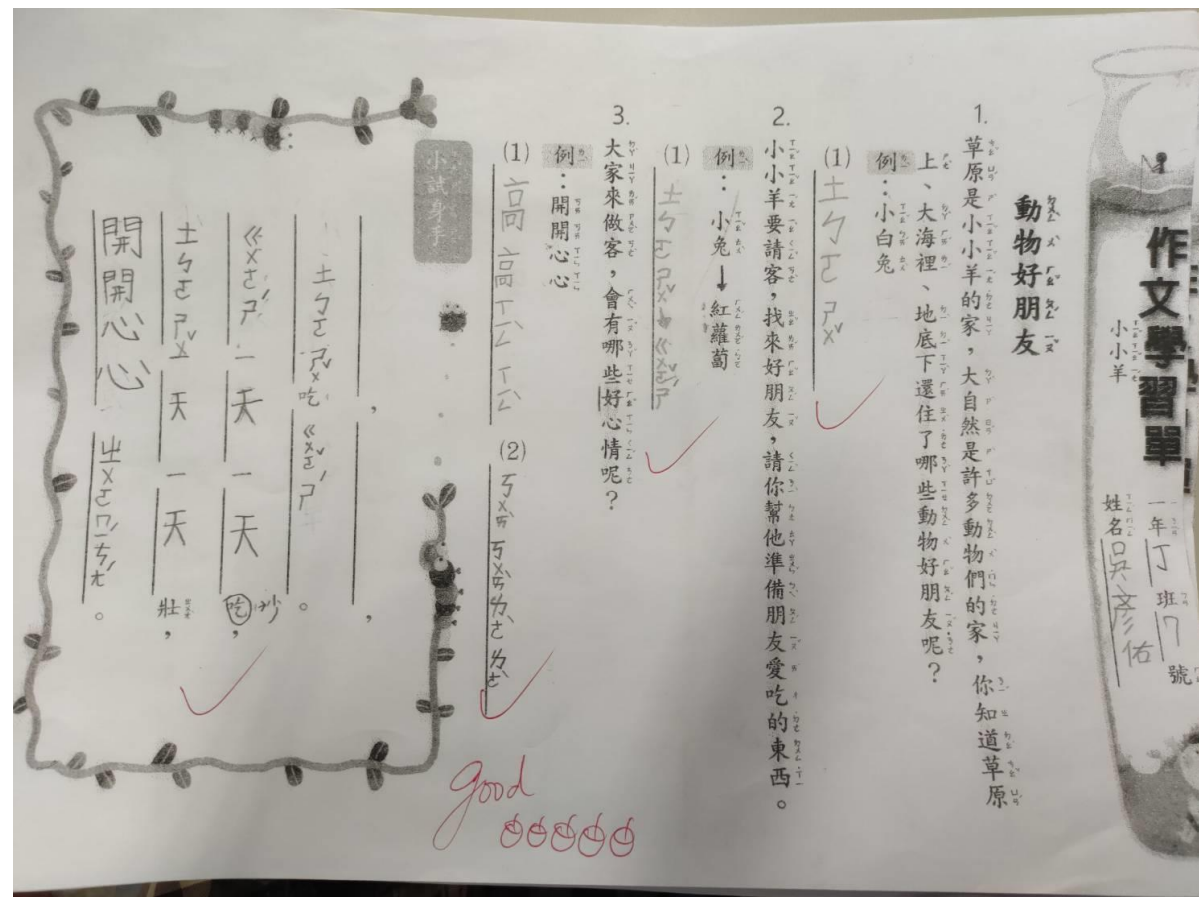 作文學習單
小小羊
一年丁班7號
姓名吳彥佑
動物好朋友
1. 草原是小小羊的家，大自然是許多動物們的家，你知道草原
上、大海裡、地底下還住了哪些動物好朋友呢？
例：小白兔
(1) 土ㄅㄛㄕㄨˇ
2. 小小羊要請客，找來好朋友，請你幫他準備朋友愛吃的東西。
例：小兔→紅蘿蔔
(1) 土ㄅㄛㄕㄨˇ→ㄍㄨㄛˇㄕˊ
3. 大家來做客，會有哪些好心情呢？
例：開開心心
(1) 高高ㄒㄧㄥㄒㄧㄥ
(2) ㄎㄨㄞˋㄎㄨㄞˋㄌㄜˋㄌㄜˋ
小試身手
，
土ㄅㄛㄕㄨˇ吃ㄍㄨㄛˇㄕˊ。
ㄍㄨㄛˇㄕˊ一天一天吃少，
土ㄅㄛㄕㄨˇ一天一天壯，
開開心心ㄓㄨㄛㄇㄧˊㄘㄤˊ。
good